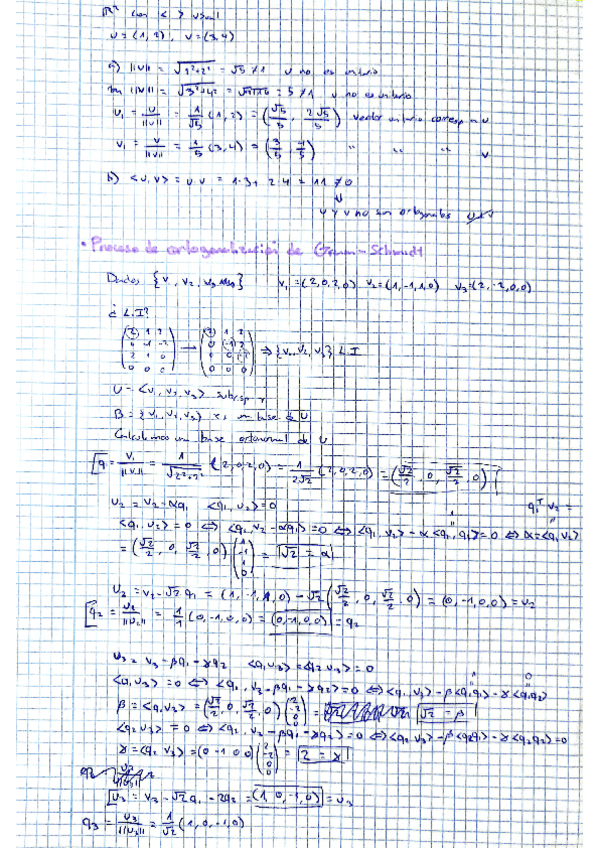 ℝ² con < > usual
u = (1,2), v = (3,4)
a) ||u|| = √(1²+2²) = √5 ≠ 1 u no es unitario
||v|| = √(3²+4²) = = 5 ≠ 1 v no es unitario
u₁ = u/||u|| = 1/√5 (1,2) = (√5/5, 2√5/5) vector unitario corresp a u
v₁ = v/||v|| = 1/5 (3,4) = (3/5, 4/5) " " " v
b) <u,v> = u·v = 1·3 + 2·4 = 11 ≠ 0
⇓
u y v no son ortogonales
• Proceso de ortogonalización de Gram-Schmidt
Dados {v₁, v₂, v₃} v₁=(2,0,2,0) v₂=(1,-1,1,0) v₃=(2,-2,0,0)
¿ L.I?
(2 1 2; 0 -1 -2; 2 1 0; 0 0 0) → (2 1 2; 0 -1 -2; 0 0 -2; 0 0 0) ⇒ {v₁, v₂, v₃} L.I
U = <v₁, v₂, v₃> subesp v
B = {v₁, v₂, v₃} es una base de U
Calculamos una base ortonormal de U
q₁ = v₁/||v₁|| = 1/√(2²+2²) (2,0,2,0) = 1/2√2 (2,0,2,0) = (√2/2, 0, √2/2, 0)
q₁ᵀ v₂ =
u₂ = v₂ - αq₁ <q₁, u₂> = 0
<q₁, u₂> = 0 ⇔ <q₁, v₂ - αq₁> = 0 ⇔ <q₁, v₂> - α<q₁, q₁> = 0 ⇔ α = <q₁, v₂>
= (√2/2, 0, √2/2, 0) (1; -1; 1; 0) = √2 = α
u₂ = v₂ - √2 q₁ = (1, -1, 1, 0) - √2 (√2/2, 0, √2/2, 0) = (0, -1, 0, 0) = u₂
q₂ = u₂/||u₂|| = 1/1 (0, -1, 0, 0) = (0, -1, 0, 0) = q₂
u₃ = v₃ - βq₁ - γq₂ <q₁, u₃> = <q₂, u₃> = 0
<q₁, u₃> = 0 ⇔ <q₁, v₃ - βq₁ - γq₂> = 0 ⇔ <q₁, v₃> - β<q₁, q₁> - γ<q₁, q₂>
β = <q₁, v₃> = (√2/2, 0, √2/2, 0) (2; -2; 0; 0) = √2 = β
<q₂, u₃> = 0 ⇔ <q₂, v₃ - βq₁ - γq₂> = 0 ⇔ <q₂, v₃> - β<q₂, q₁> - γ<q₂, q₂> = 0
γ = <q₂, v₃> = (0 -1 0 0) (2; -2; 0; 0) = 2 = γ
u₃ = v₃ - √2 q₁ - 2q₂ = (1, 0, -1, 0) = u₃
q₃ = u₃/||u₃|| = 1/√2 (1, 0, -1, 0)